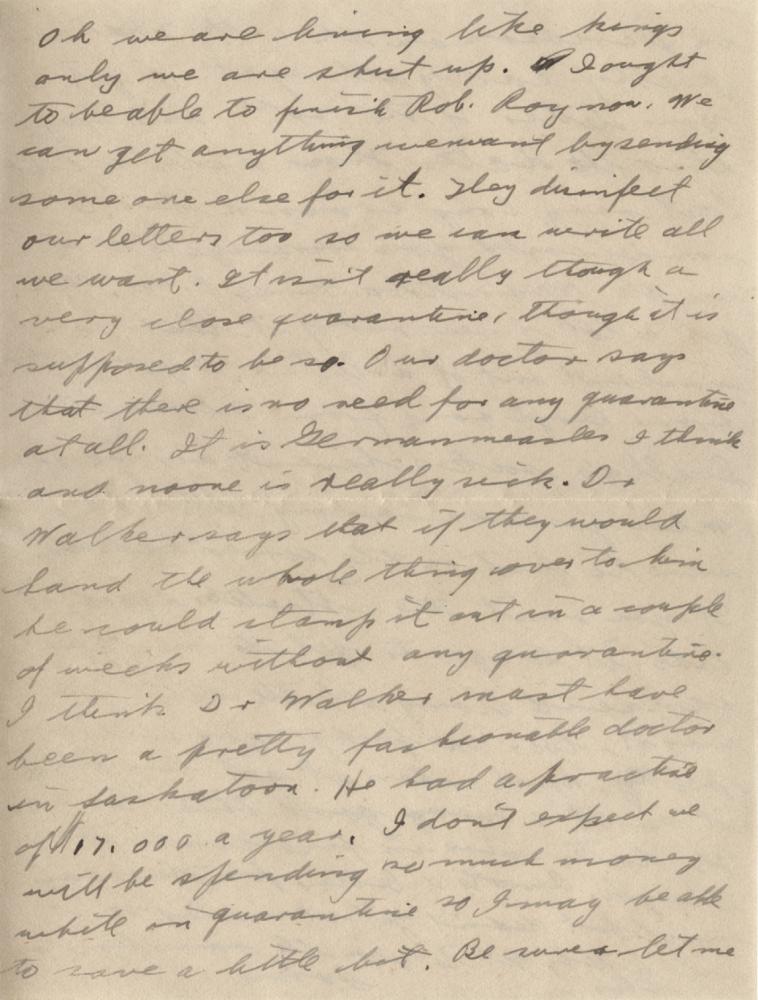 Oh we are living like kings
only we are shut up. I ought
to be able to finish Rob. Roy now. We
can get anything we want by sending
some one else for it. They disinfect
our letters too so we can write all
we want. It isn't really though a
very close quarantine, though it is
supposed to be so. Our doctor says
that there is no need for any quarantine
at all. It is German measles I think
and no one is really sick. Dr
Walker says that if they would
hand the whole thing over to him
he could stamp it out in a couple
of weeks without any quarantine.
I think Dr Walker must have
been a pretty fashionable doctor
in Saskatoon. He had a practice
of $17.000 a year. I don't expect we
will be spending so much money
while in quarantine so I may be able
to save a little bit. Be sure & let me